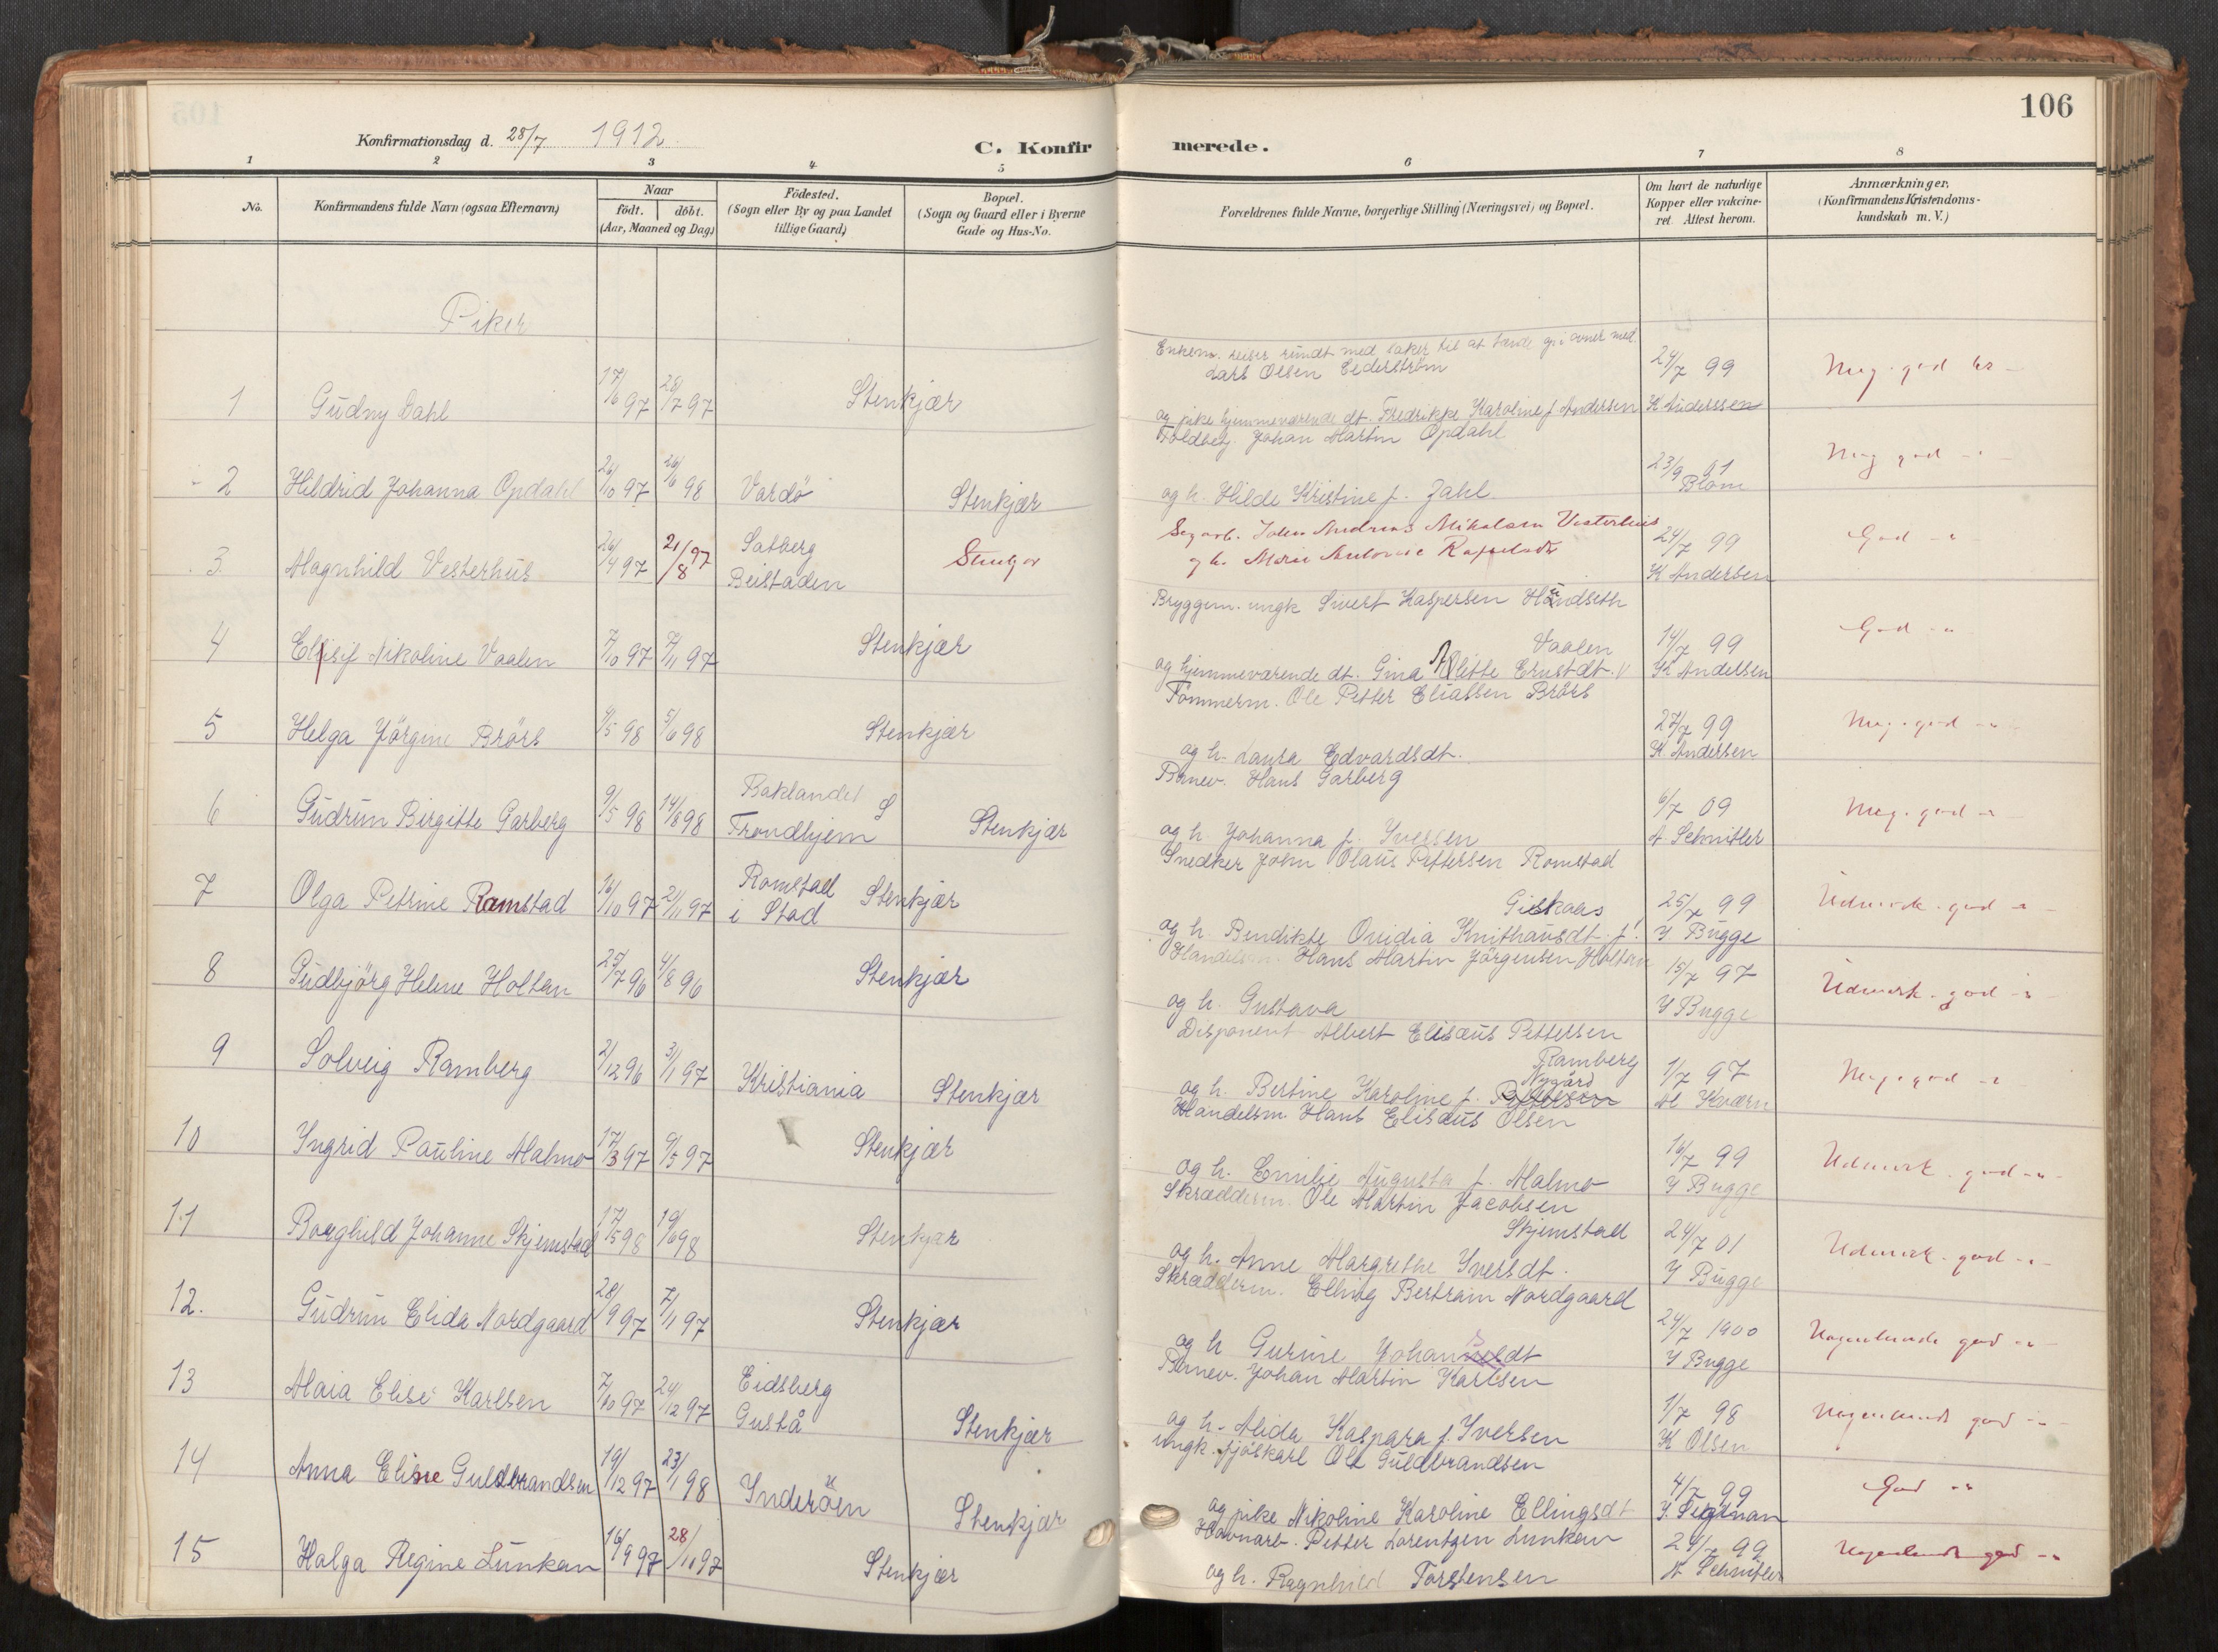 106
Konfirmationsdag d. 28/7 1912.
C. Konfirmerede.
1 2 3 4 5 6 7 8
No.
Konfirmandens fulde Navn (ogsaa Efternavn)
Naar
födt. döbt.
(Aar, Maaned og Dag)
Födested.
(Sogn eller By og paa Landet
tillige Gaard)
Bopæl.
(Sogn og Gaard eller i Byerne
Gade og Hus-No.
Forældrenes fulde Navne, borgerlige Stilling (Næringsvei) og Bopæl.
Om havt de naturlige
Kopper eller vakcine-
ret. Attest herom.
Anmærkninger,
(Konfirmandens Kristendoms-
kundskab m. V.)
Piker
Enkem. reiser rundt med saker til at tænde op i ovner med.
Lars Olsen Cederström
1 Gudny Dahl 17/6 97 28/7 97 Stenkjær 24/7 99 Meg. god
og pike hjemmeværende dt. Fredrikke Karoline f. Andersen K Anderssen
Toldbetj. Johan Martin Opdahl
2 Hildrid Johanna Opdahl 26/10 97 26/6 98 Vardö Stenkjær 23/9 01 Meg god -"-
og h. Hilde Kristine f. Zahl Blom
Sagarb. John Andreas Mikalsen Vesterhus
3. Magnhild Vesterhus 26/4 97 21/8 97 Solberg 24/7 99 God -"-
Beistaden Stenkjær
og h. Marie Antonie K Andersen
Bryggem. ungk Sivert Kaspersen Handseth
4 Ellisif Nikoline Vaalen 7/10 97 7/11 97 Stenkjær Vaalen 14/7 99 God -"-
og hjemmeværende dt. Gina Alette Ernstdt. K Andersen
Tømmerm. Ole Petter Eliassen Brörs
5 Helga Jörgine Brörs 4/5 98 5/6 98 Stenkjær 27/7 99 Meg. god -"-
og h. Laura Edvardsdt. K Andersen
Banev. Hans Garberg
6 Gudrun Birgitte Garberg 9/5 98 14/8 98 Baklandet S 6/7 09 Meg. god -"-
Trondhjem Stenkjær
og h. Johanna f. Iversen A Schnitler
Snedker John Olaus Pettersen Romstad
7 Olga Petrine Ramstad 16/10 97 21/11 97 Romstad i Stad Stenkjær Giskaas 25/7 99 Udmerk. god -"-
og h. Bendikte Ovidia Knithausdt. f. Y Bugge
Handelsm. Hans Martin Jörgensen Holtan
8 Gudbjörg Helene Holtan 25/7 96 4/8 96 Stenkjær 15/7 97 Udmerk. god -"-
og h. Gustava Y Bugge
Disponent Albert Elisæus Pettersen
9 Solveig Ramberg 2/12 96 3/1 97 Kristiania Stenkjær Ramberg 1/7 97 Meg. god -"-
Nygård
og h. Bertine Karoline f. Pettersen M Kværn
Handelsm. Hans Elisæus Olsen
10 Yngrid Pauline Malmo 17/3 97 9/5 97 Stenkjær 16/7 99 Udmerk. god -"-
og h. Emilie Augusta f. Malmo Y Bugge
Skrædderm. Ole Martin Jacobsen
11 Borghild Johanne Skjemstad 17/5 98 19/6 98 Stenkjær Skjemstad 24/7 01 Udmerk. god -"-
og h. Anne Margrethe Iversdt. Y Bugge
Skrædderm. Elling Bertram Nordgaard
12. Gudrun Elida Nordgaard 28/9 97 7/11 97 Stenkjær 24/7 1900 Nogenlunde god -"-
og h Gurine Johannesdt Y Bugge
Banev. Johan Martin Karlsen
13 Maia Elise Karlsen 7/10 97 24/12 97 Eidsberg 1/7 98 Nogenlunde god -"-
Gustå Stenkjær
og h. Alida Kaspara f. Iversen K Olsen
ungk. fjöskarl Ole Guldbrandsen
14 Anna Eline Guldbrandsen 19/12 97 23/1 98 Inderöen Stenkjær 4/7 99 God -"-
og pike Nikoline Karoline Ellingsdt
Havnarb. Petter Lorentzen Lunken
15 Halga Regine Lunkan 16/9 97 28/11 97 Stenkjær 24/7 99 Nogenlunde god -"-
og h. Ragnhild Torstensen A Schnitler